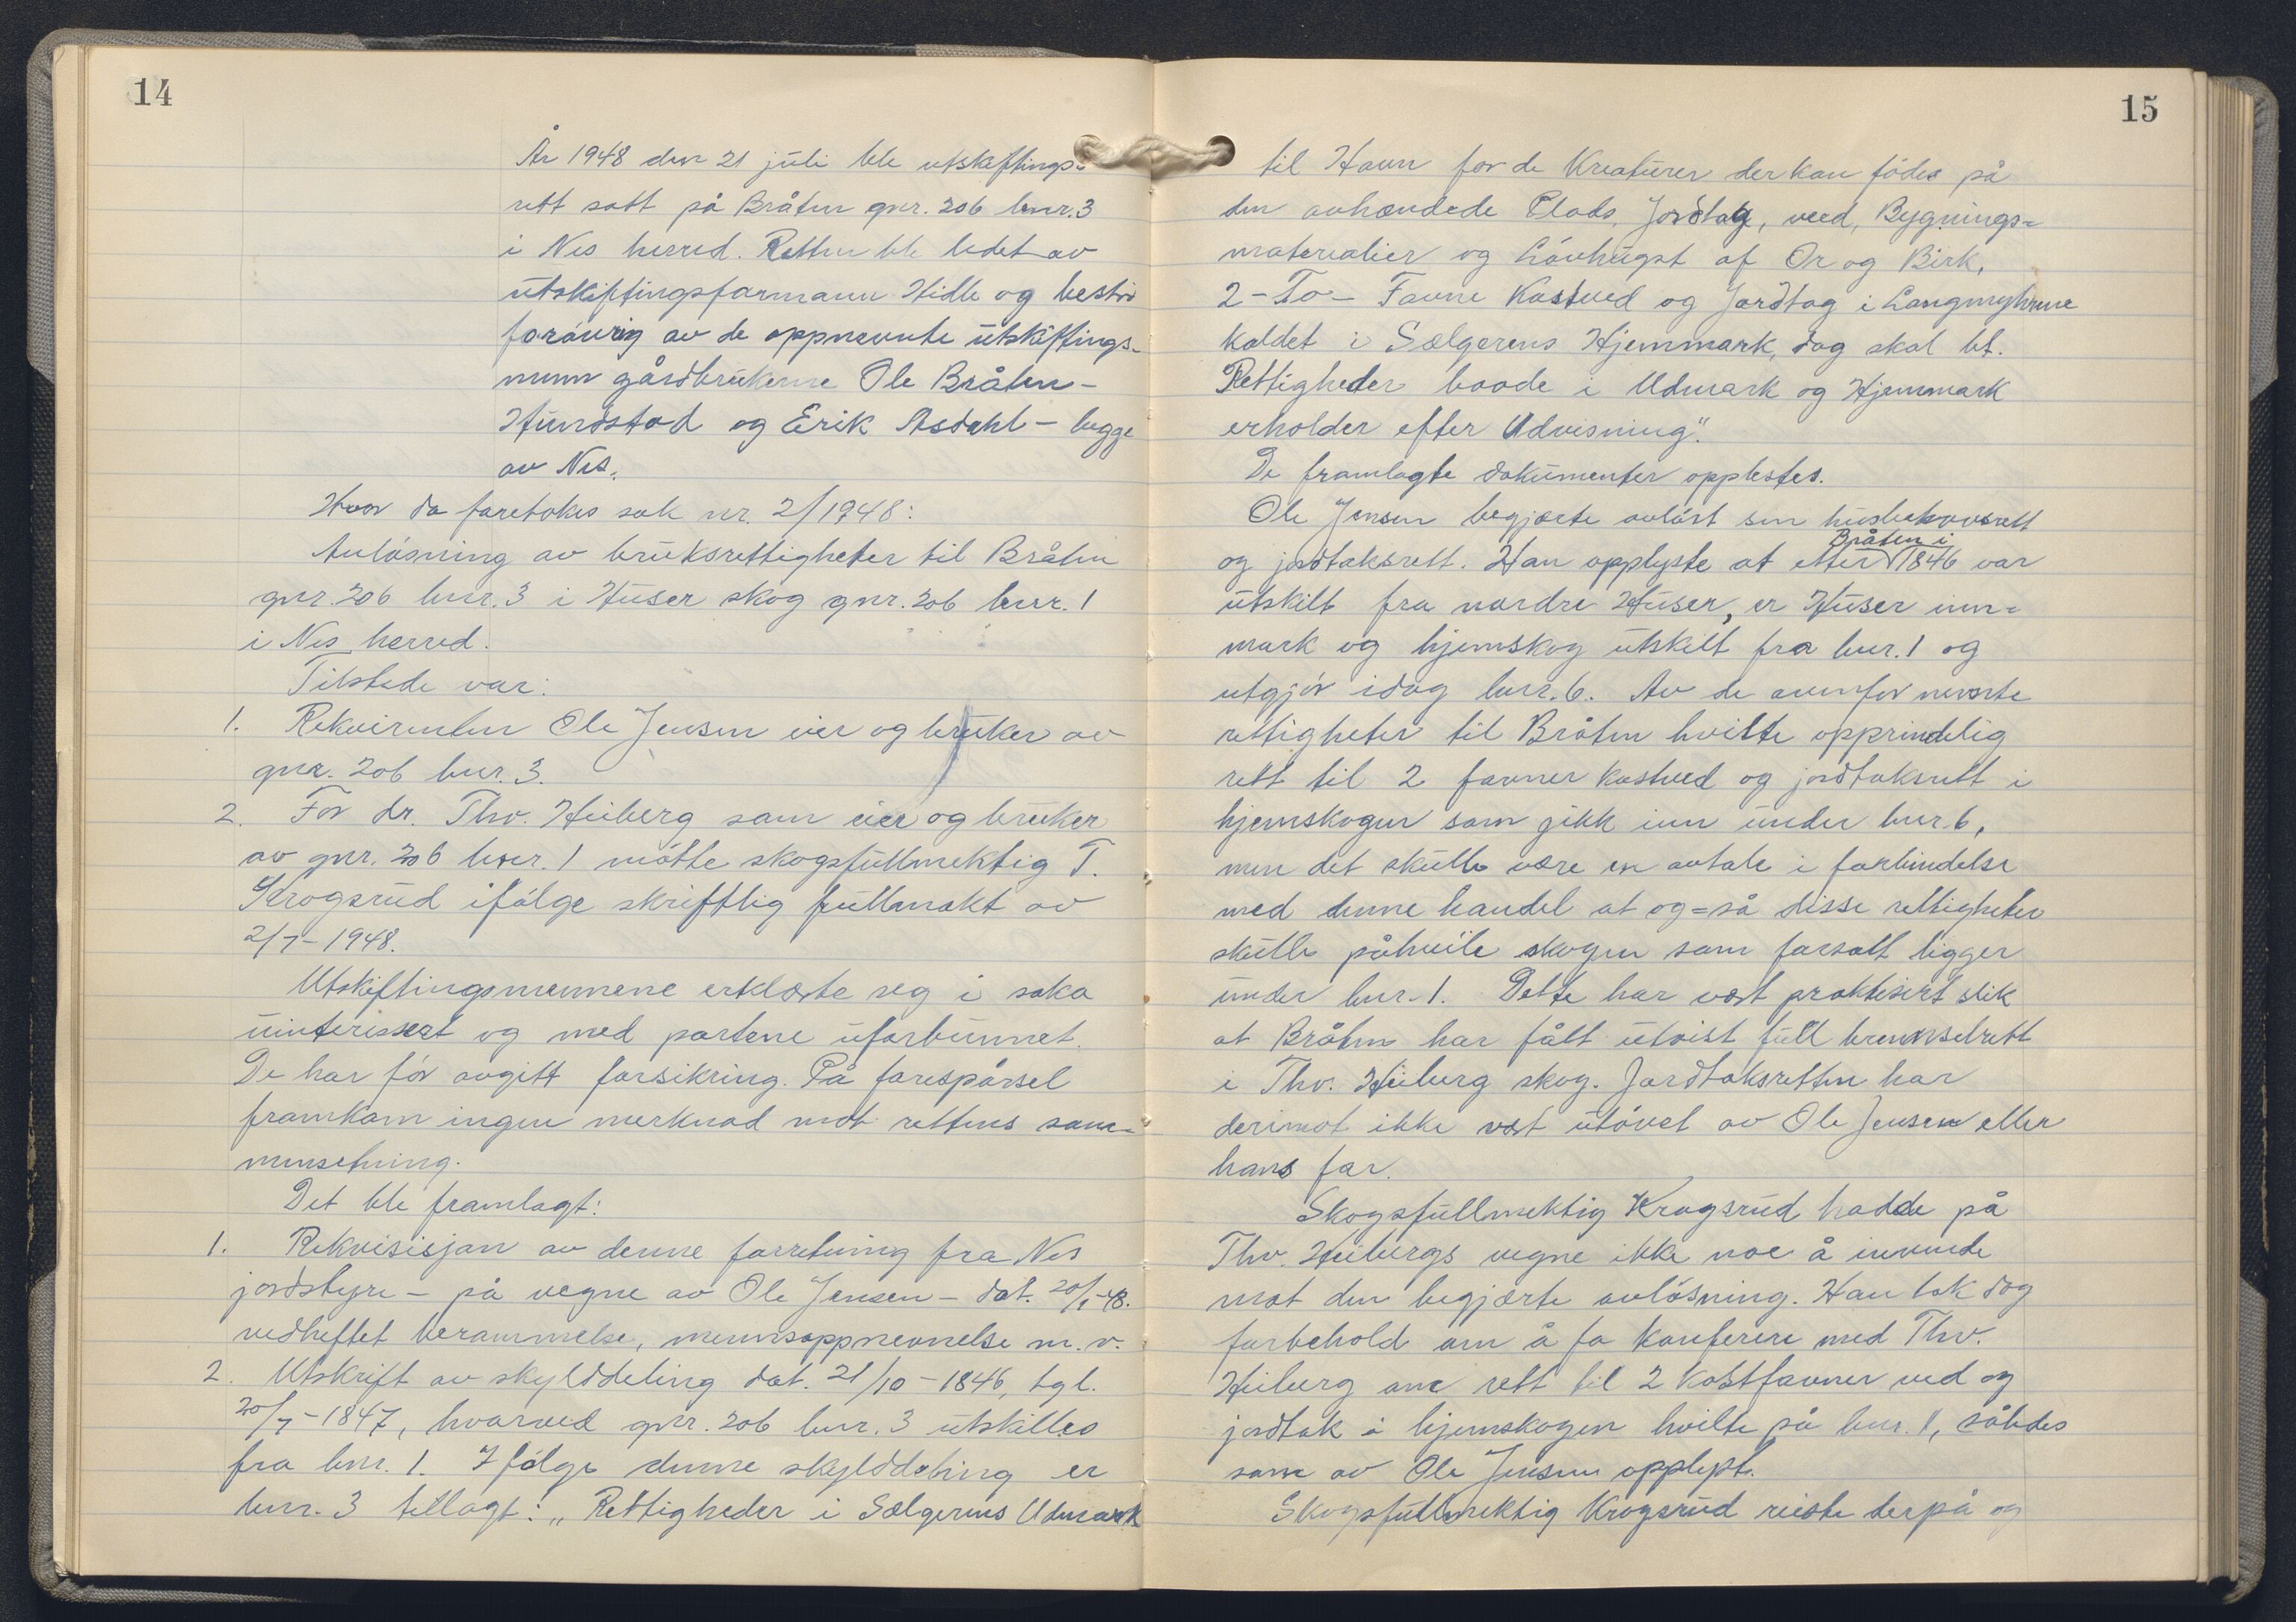 14
År 1948 den 21 juli ble utskiftings-
rett satt på Bråten gnr. 206 bnr. 3
i Nes herred. Retten ble ledet av
utskiftingsformann Hidle og bestod
forøvrig av de oppnevnte utskiftings-
menn gårdbrukerne Ole Bråten-
Hundstad og Erik Asdahl - begge
av Nes.
Hvor da foretokes sak nr. 2/1948:
Avløsning av bruksrettigheter til Bråten
gnr. 206 bnr. 3 i Huser skog gnr. 206 bnr. 1
i Nes herred.
Tilstede var:
1. Rekvirenten Ole Jensen eier og bruker av
gnr. 206 bnr. 3.
2. For dr. Thv. Heiberg som eier og bruker
av gnr. 206 bnr. 1 møtte skogsfullmektig T.
Krogsrud ifølge skriftlig fullmakt av
2/7-1948.
Utskiftingsmennene erklærte seg i saka
uinterissert og med partene uforbunnet.
De har før avgitt forsikring. På forespørsel
framkom ingen merknad mot rettens sam-
mensetning.
Det ble framlagt:
1. Rekvisisjon av denne forretning fra Nes
jordstyre - på vegne av Ole Jensen - dat. 20/1-48.
vedheftet berammelse, mennsoppnevnelse m.v.
2. Utskrift av skylddeling dat. 21/10-1846, tgl.
20/7-1847, hvorved gnr. 206 bnr. 3 utskilles
fra bnr. 1. Ifølge denne skylddeling er
bnr. 3 tillagt: „Rettigheder i Sælgerens Udmark
15
til Havn for de Kreaturer der kan fødes på
den avhændede Plads, Jordtag, veed, Bygnings=
materialier og Løvhugst af Or og Birk,
2-To- Favne Kastved og Jordtag i Langmyhrene
kaldet i Sælgerens Hjemmark, dog skal bt.
Rettigheder baade i Udmark og Hjemmark
erholder efter Udvisning".
De framlagte dokumenter opplestes.
Ole Jensen begjærte avløst sin husbehovsrett
og jordtaksrett. Han opplyste at etter Bråten i 1846 var
utskilt fra nordre Huser, er Huser inn=
mark og hjemskog utskilt fra bnr. 1 og
utgjør idag bnr. 6. Av de ovenfor nevnte
rettigheter til Bråten hvilte opprindelig
rett til 2 favner kastved og jordtaksrett i
hjemskogen som gikk inn under bnr. 6,
men det skulle være en avtale i forbindelse
med denne handel at og=så disse rettigheter
skulle påhvile skogen som forsatt ligger
under bnr. 1. Dette har vært praktisert slik
at Bråten har fått utvist full brennselrett
i Thv. Heiberg skog. Jordtaksretten har
derimot ikke vært utøvet av Ole Jensen eller
hans far.
Skogsfullmektig Krogsrud hadde på
Thv. Heibergs vegne ikke noe å invende
mot den begjærte avløsning. Han tok dog
forbehold om å få konferere med Thv.
Heiberg om rett til 2 kastfavner ved og
jordtak i hjemskogen hvilte på bnr. 1, således
som av Ole Jensen opplyst.
Skogsfullmektig Krogsrud reiste derpå og